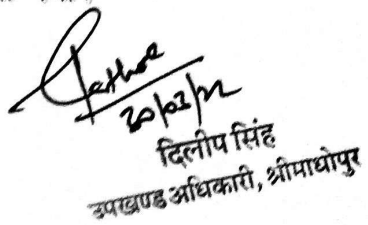 30/03/22
दिलीप सिंह
उपखण्ड अधिकारी, श्रीमाधोपुर